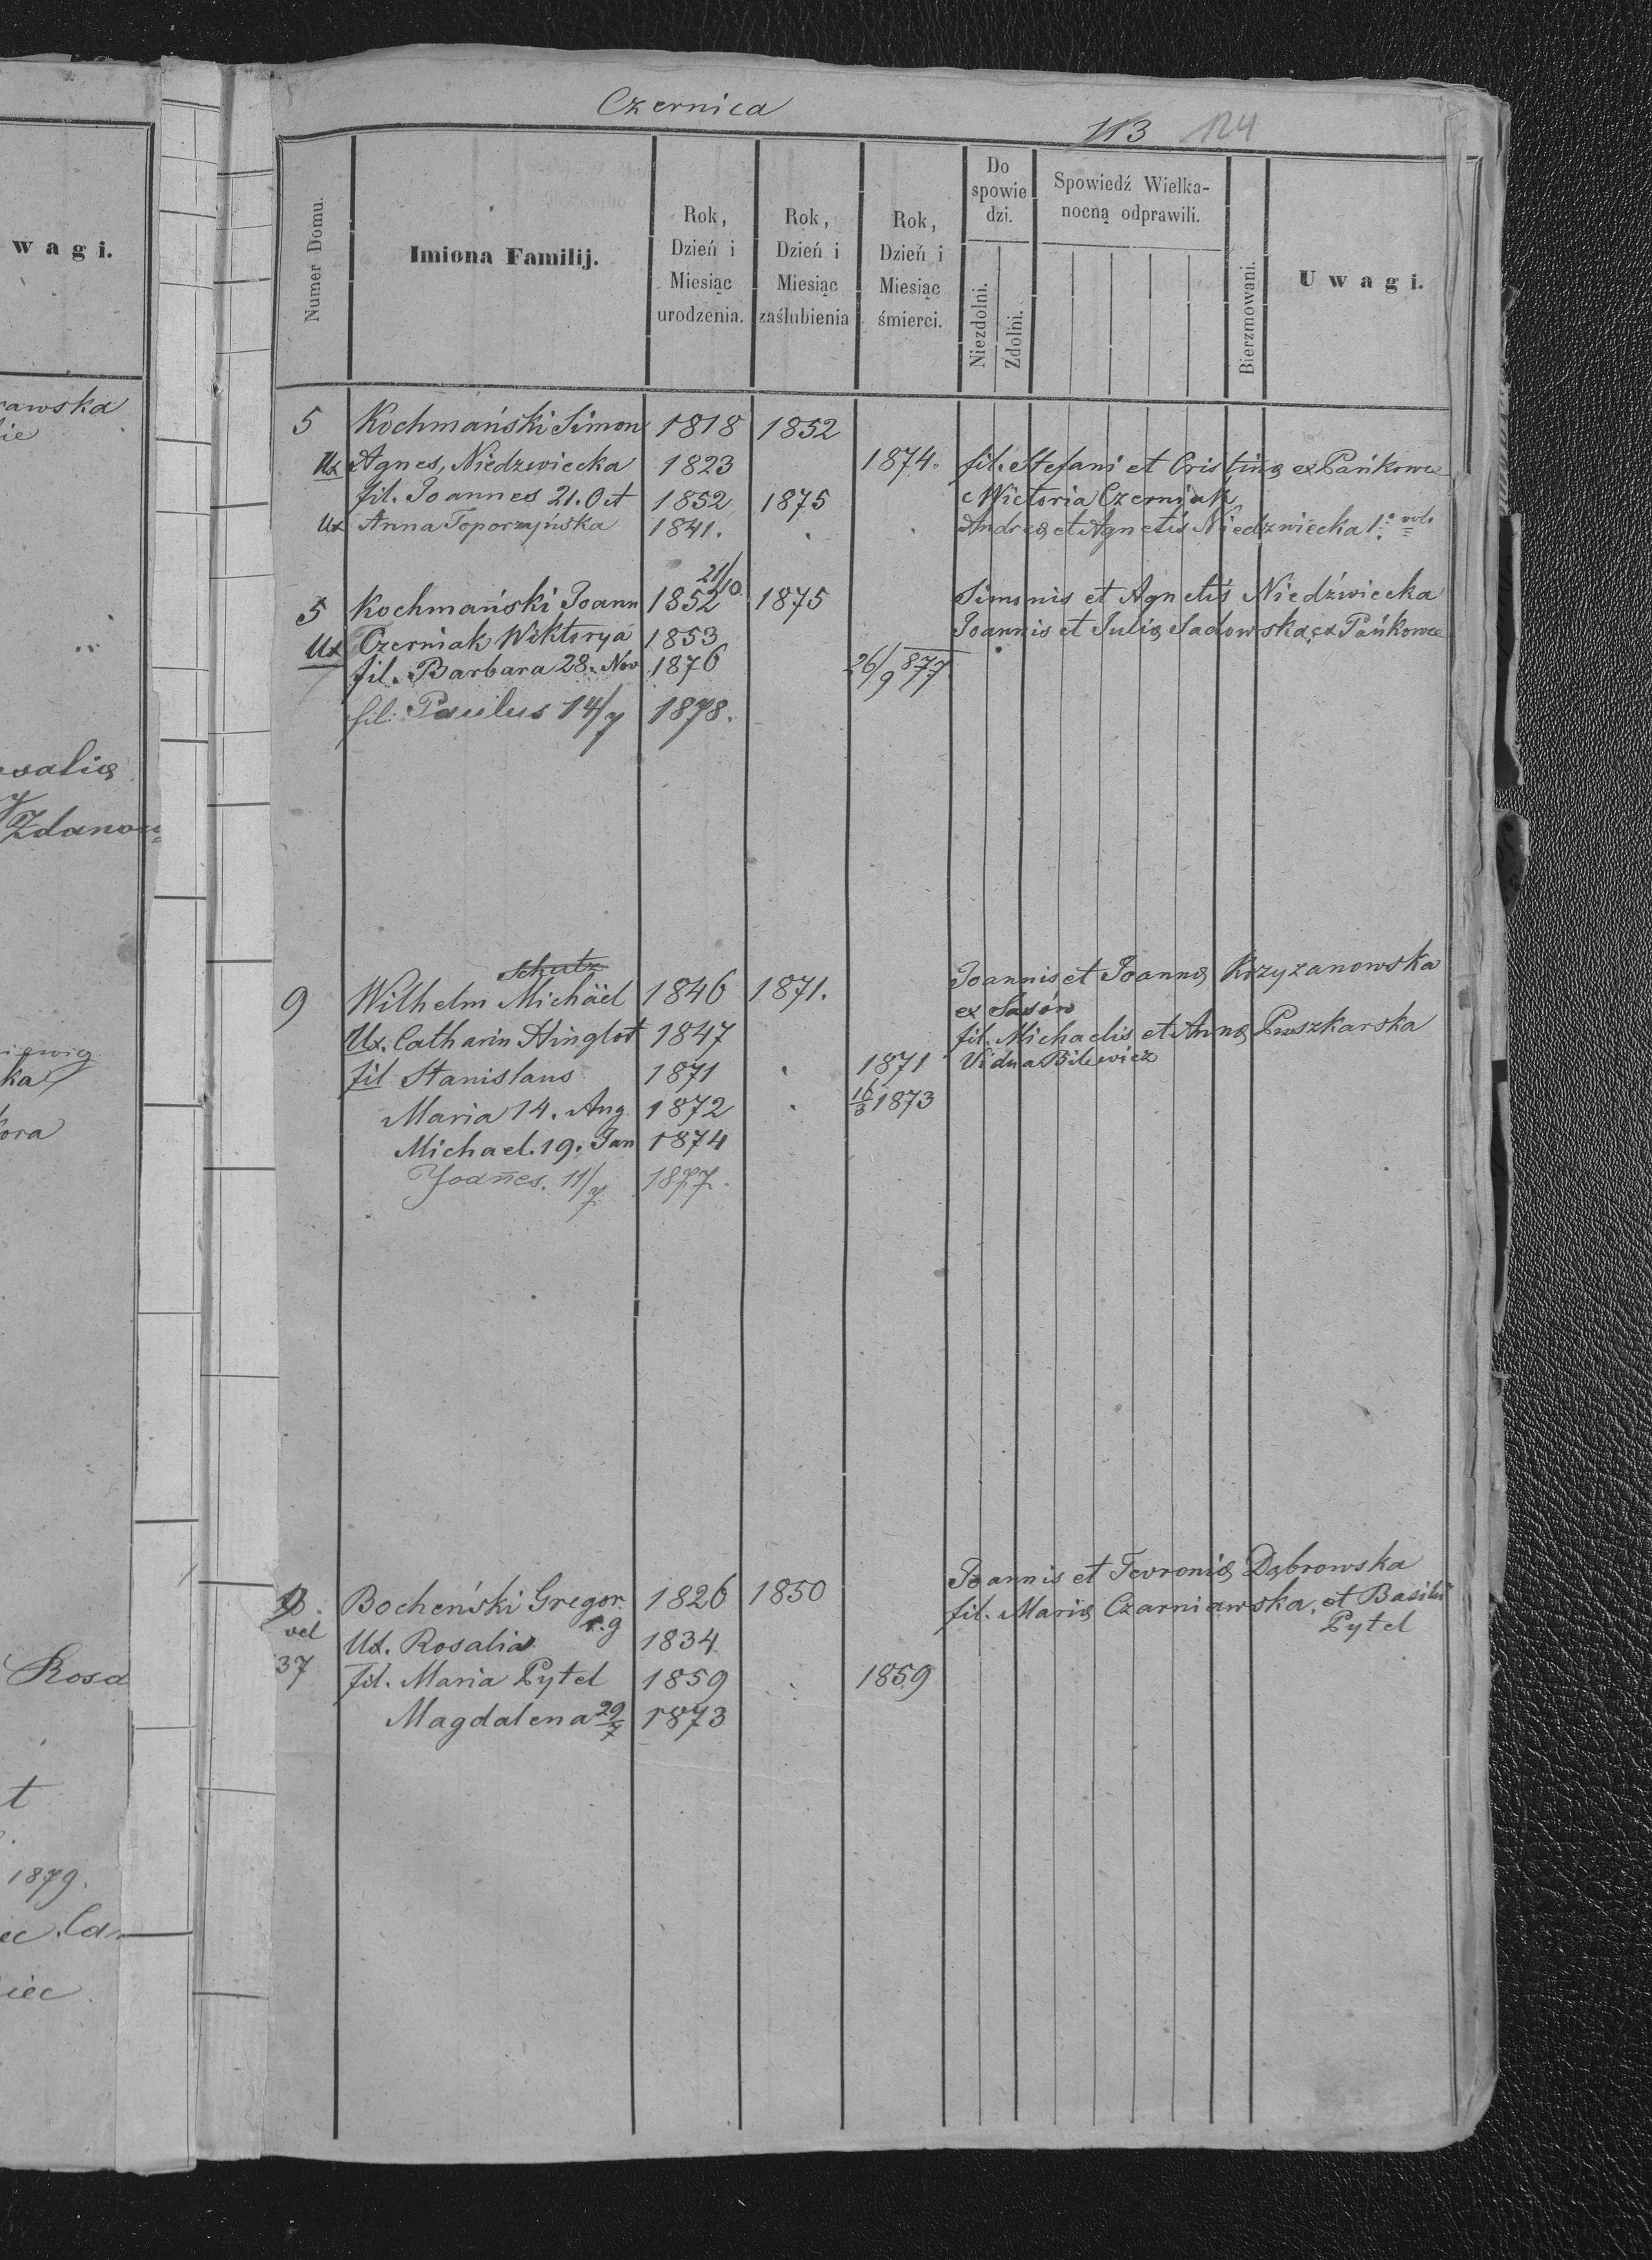 Czernica
113 124
w a g i.
Numer Domu.
Imiona Familij.
Rok, Dzień i Miesiąc urodzenia.
Rok, Dzień i Miesiąc zaślubienia
Rok, Dzień i Miesiąc śmierci.
Do spowiedzi.
Niezdolni.
Zdolni.
Spowiedź Wielkanocną odprawili.
Bierzmowani.
U w a g i.
5 Kochmański Simon 1818 1852
Ux Agnes, Niedzwiecka 1823 1874. fil. Stefani et Cristinę ex Pańkowce
fil. Joannes 21. Oct 1852 1875 Wictoria Czerniak
Ux Anna Toporzyńska 1841. Andreę et Agnetis Niedzwiecka 1º voti
5 Kochmański Joann 21/10 1852 1875 Simonis et Agnetis Niedźwiecka
Ux Czerniak Wiktorya 1853 Joannis et Julię Sadowska, ex Pańkowce
fil. Barbara 28. Nov 1876 26/9 877
fil: Paulus 14/7 1878.
Schutz
9 Wilhelm Michäel 1846 1871. Joannis et Joannę Krzyzanowska
ex Sasów
Ux. Catharin Hinglot 1847 fil. Michaelis et Annę Puszkarska
fil Stanislaus 1871 1871 Vidua Bilewicz
Maria 14. Aug 1872 16/3 1873
Michael. 19. Jan 1874
Joañes. 11/7 1877.
vel
37
Bocheński Gregor. r.g 1826 1850 Joannis et Tevronię Dąbrowska
Ux. Rosalia 1834 fil. Marię Czarniawska, et Basilii
Pytel
fil. Maria Pytel 1859 1859
Magdalena 29/7 1873
rawska
ie
Zdanow
ka
ora
Rosa
t
1879.
iec